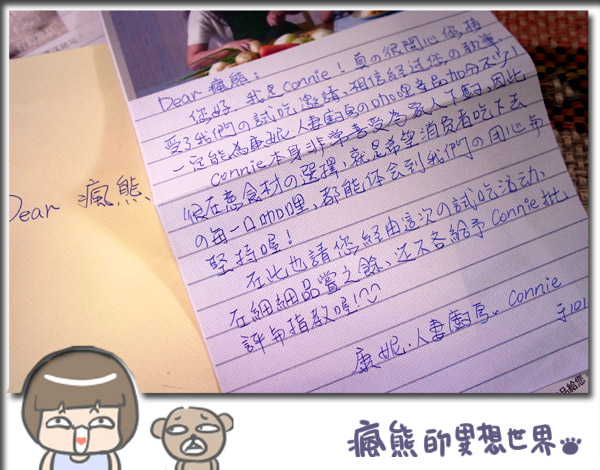 Dear 瘋熊
Dear 瘋熊：
你好，我是Connie！真の很開心您接
受了我們の試吃邀請，相信經過您の執筆、
一定能為康妮人妻廚房の
產品加分不少！
Connie本身非常喜愛為家人下廚，因此
很在意食材の選擇，就是希望消費者吃下去
の每一口，都能体会到我們の用心與
堅持喔！
在此也請您經由這次の試吃活动、
在細細品嘗之餘、还不吝給予Connie批
評與指教喔！^^
康妮.人妻廚房。Connie
品給您
瘋熊的異想世界